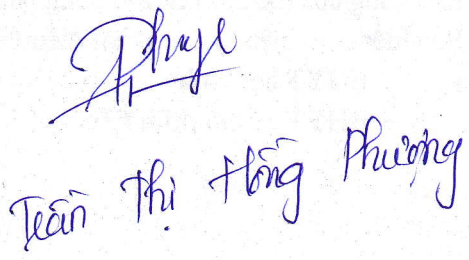 Phuge
Trần Thị Hồng Phượng